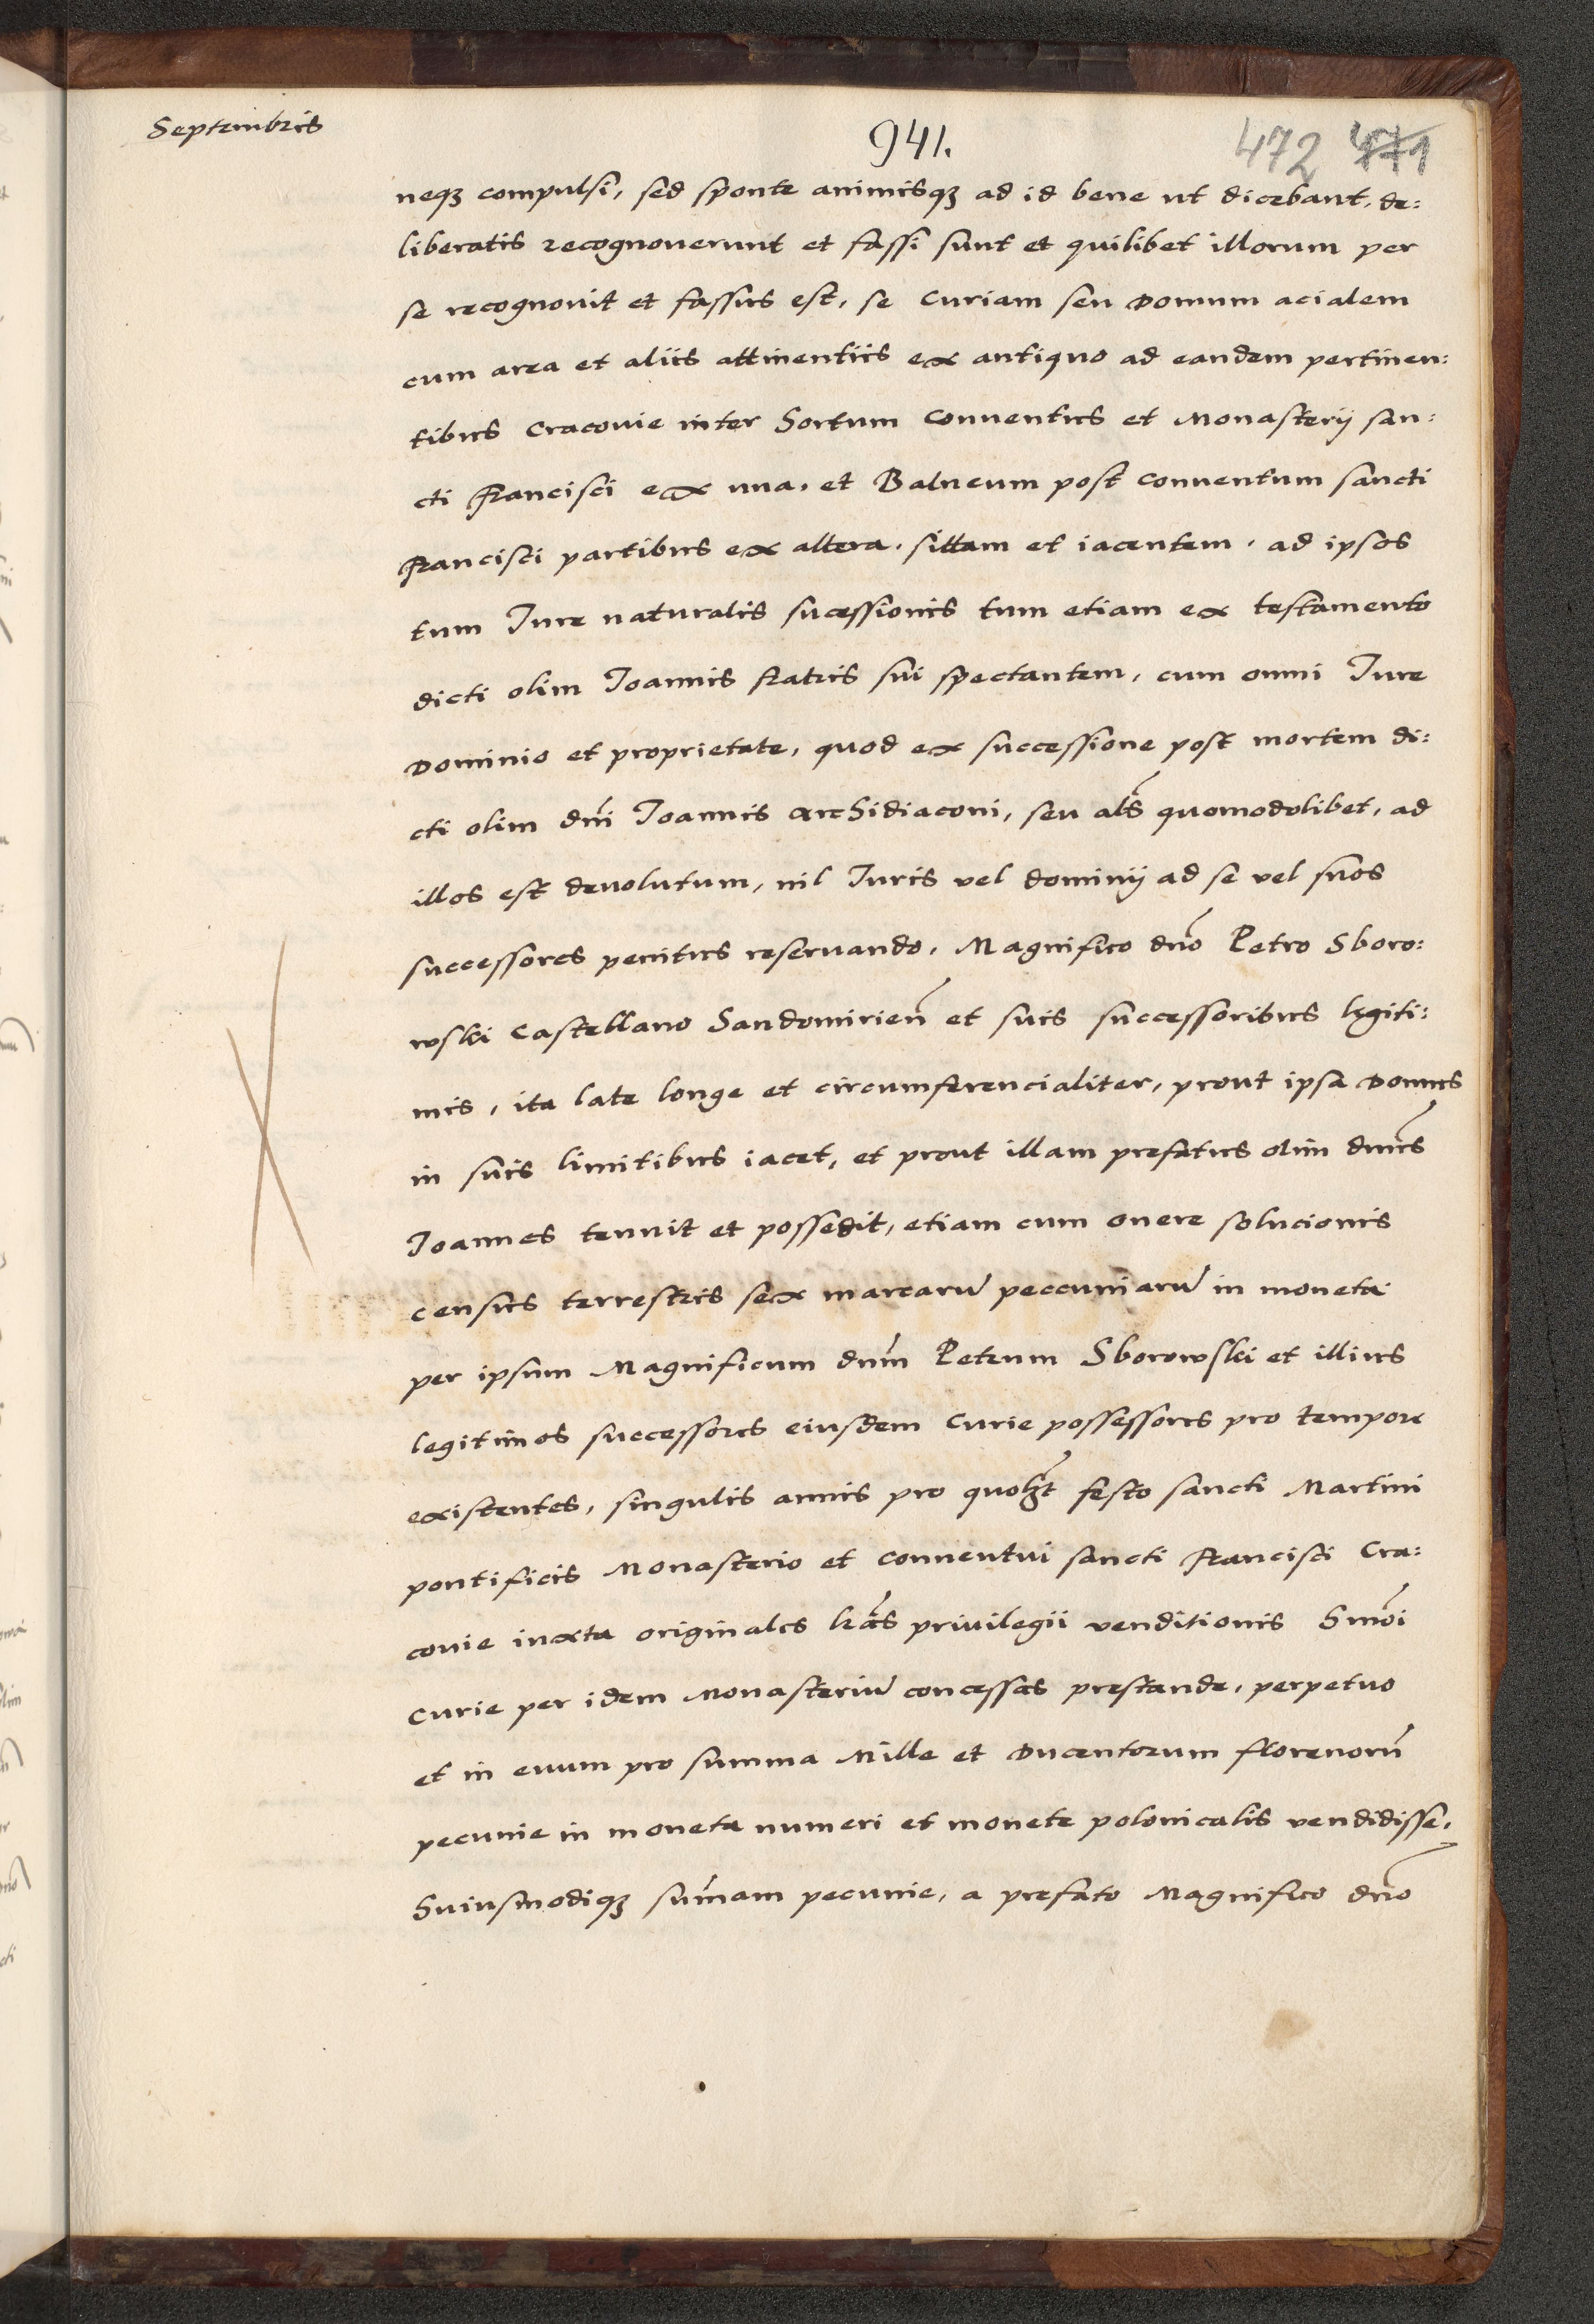 Septembris
941.
472 471
neqꝫ compulsi, sed sponte animisqꝫ ad id bene ut dicebant, de:
liberatis recognouerunt et fassi sunt et quilibet illorum per
se recognouit et fassus est, se Curiam seu Domum acialem
cum area et aliis attinentiis ex antiquo ad eandem pertinen:
tibus Cracouie inter hortum Conuentus et Monasterij san:
cti Francisci ex una, et Balneum post Conuentum sancti
Francisci partibus ex altera, sittam et iacentem, ad ipsos
tum Iure naturalis sucessionis tum etiam ex testamento
dicti olim Ioannis fratris sui spectantem, cum omni Iure
Dominio et proprietate, quod ex successione post mortem di:
cti olim dni Ioannis Archidiaconi, seu als quomodolibet, ad
illos est deuolutum, nil Iuris vel dominij ad se vel suos
successores penitus reseruando, Magnifico dno Petro Sboro:
wski Castellano Sandomirien et suis successoribus legiti:
mis, ita late longe et circumferencialiter, prout ipsa Domus
in suis limitibus iacet, et prout illam prefatus olim dnus
Ioannes tenuit et possedit, etiam cum onere solucionis
census terrestris sex marcaru peccuniaru in moneta
per ipsum Magnificum dnm Petrum Sborowski et illius
legitimos successores eiusdem Curie possessores pro tempore
existentes, singulis annis pro quolꝫt festo sancti Martini
pontificis Monasterio et Conuentui sancti Francisci Cra:
couie iuxta originales lras priuilegii venditionis hmoi
Curie per idem Monasteriu concessas prestande, perpetuo
et in euum pro summa Mille et Ducentorum florenoru
pecunie in moneta numeri et monete polonicalis vendidisse,
Huiusmodiqꝫ sumam pecunie, a prefato Magnifico dno